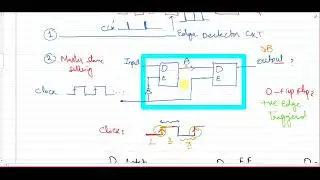 CLK
① Edge Detector CKT
② Master slave
setting
Input
A
output
B
D
E
D
E
Clock
D-flip flop:
+ve Edge
Triggered
Clock:
1
2
3
D
D
F F